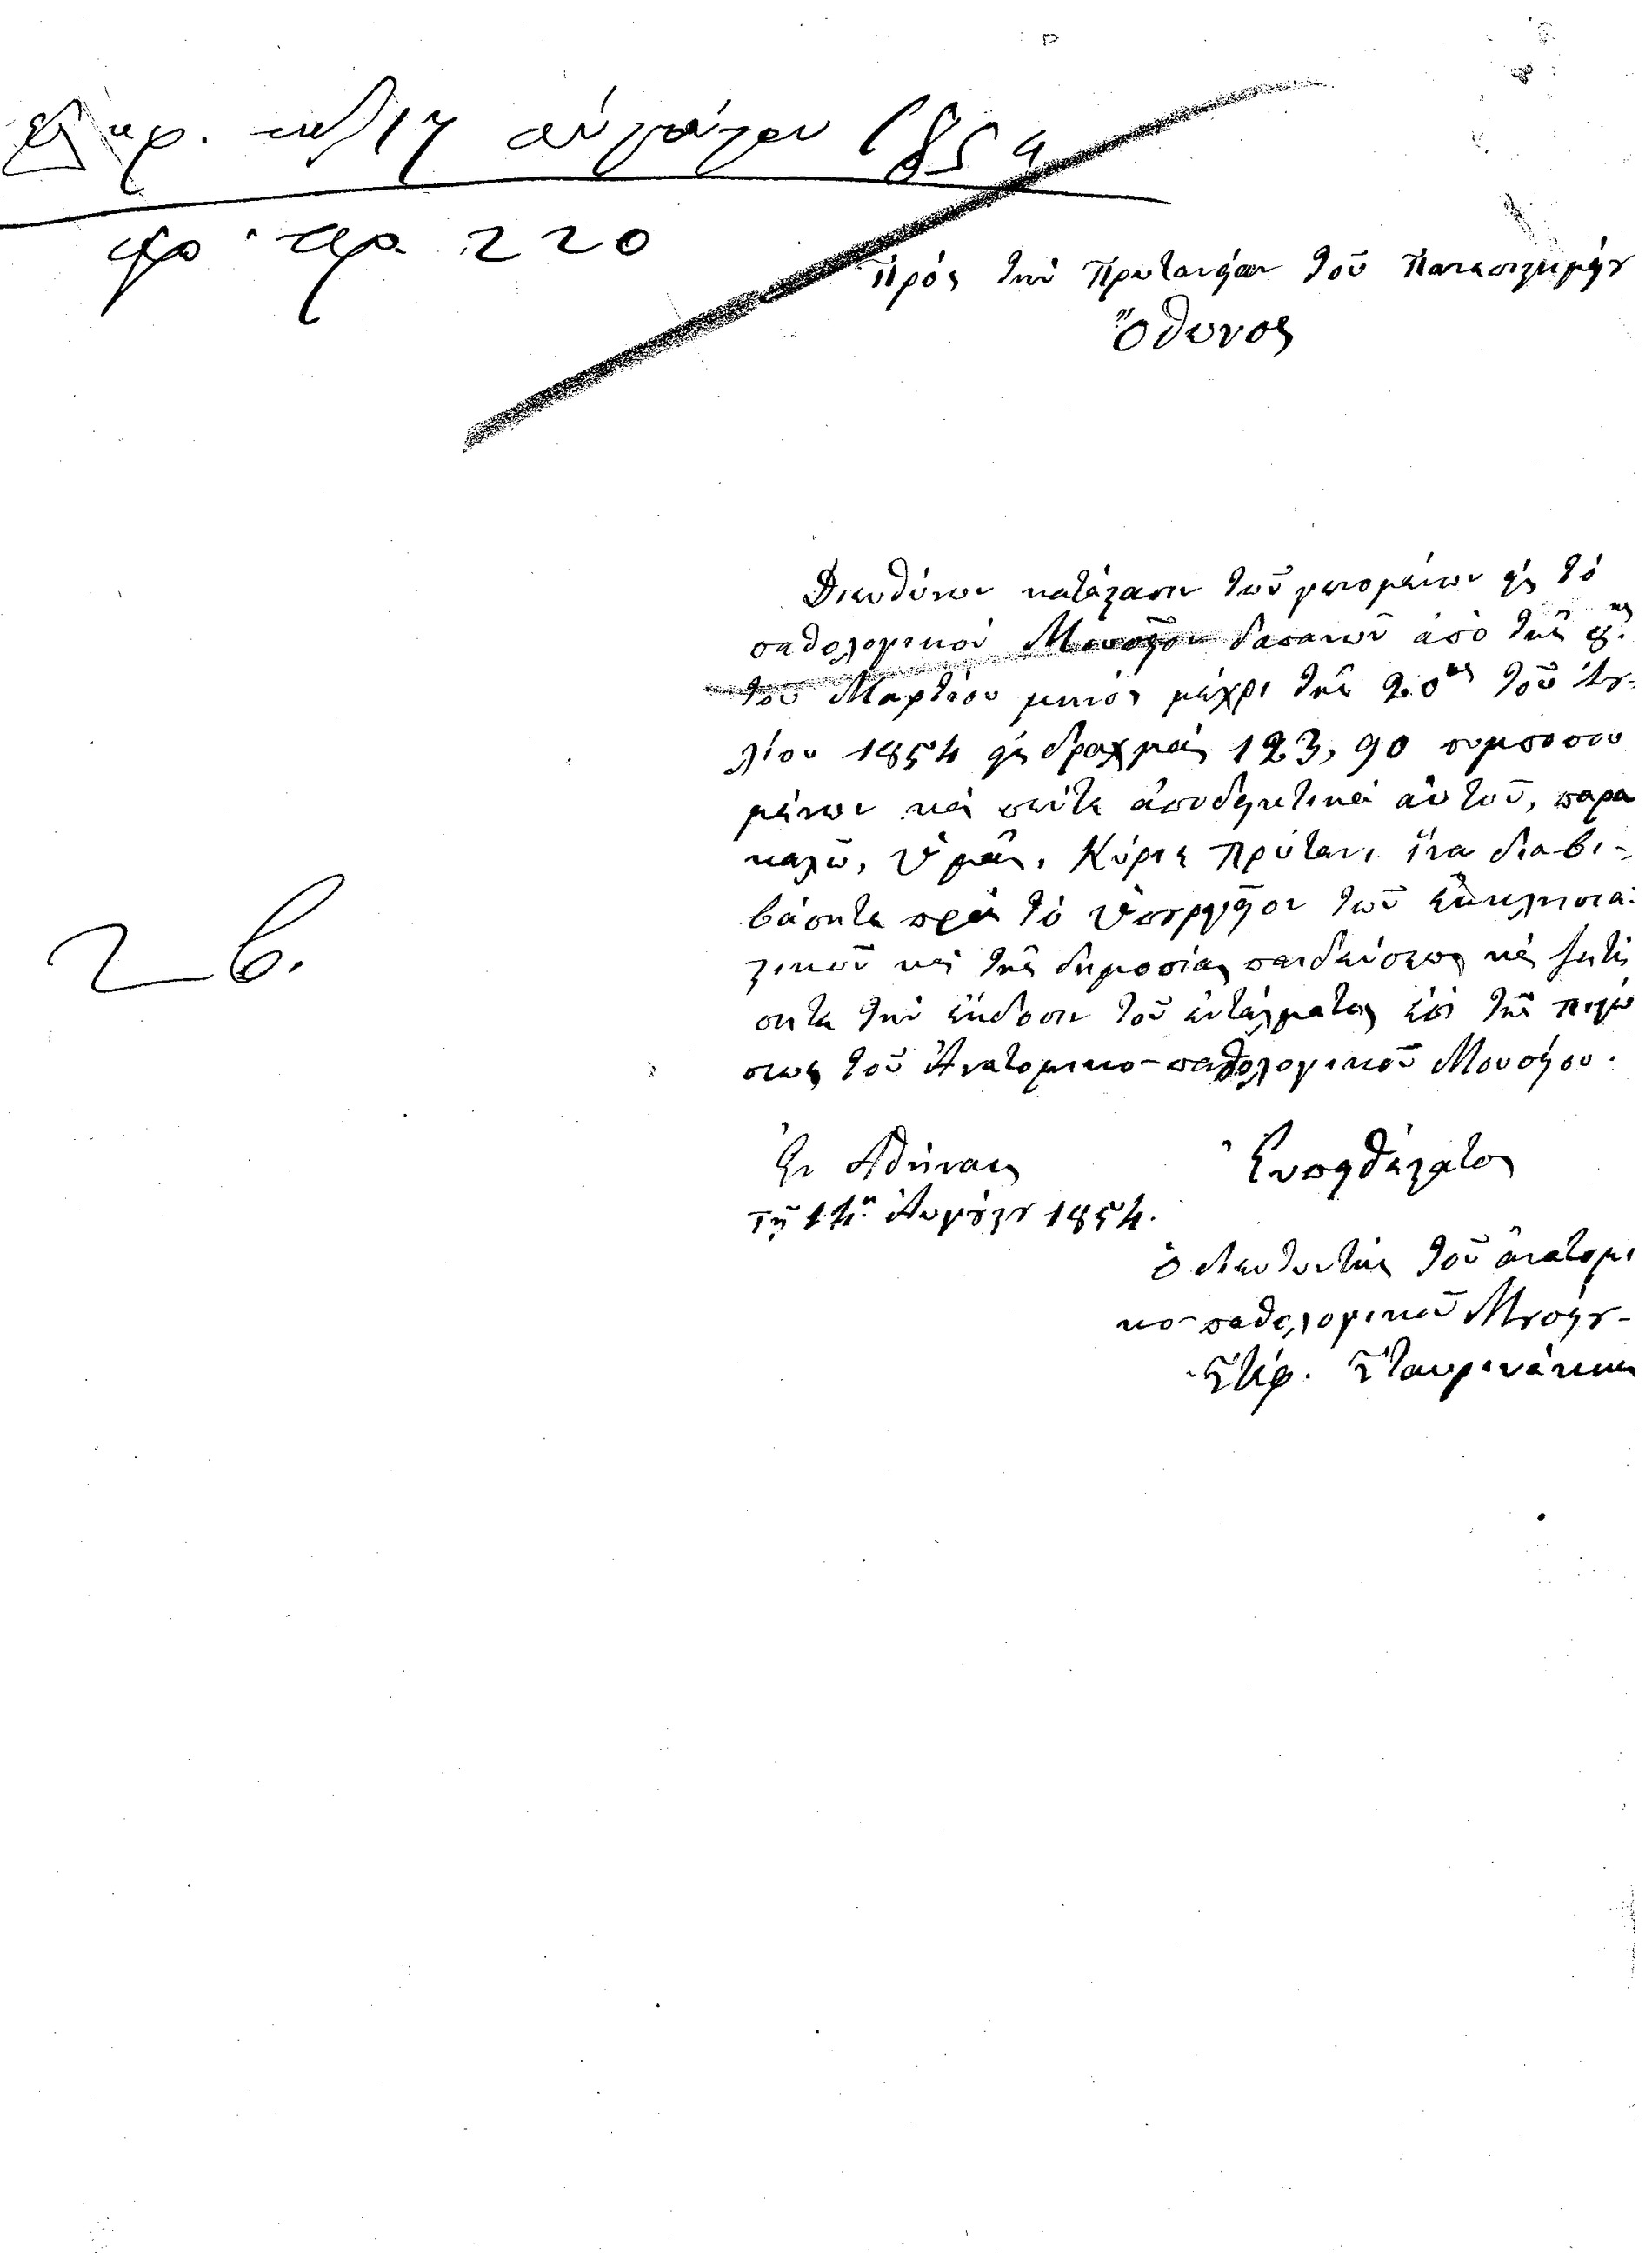 17 αὐγούστου 1854
220
Πρὸς τὴν Πρυτανείαν τοῦ Πανεπιστημίου
Ὄθωνος
Διευθύνων κατάστασιν τῶν γενομένων εἰς τὸ
παθολογικὸν Μουσεῖον δαπανῶν ἀπὸ τῆς
τοῦ Μαρτίου μηνὸς μέχρι τῆς 20ῆς τοῦ Ἰου-
λίου 1854 εἰς δραχμὰς 123,90 συμποσου
μένων καὶ πέντε ἀποδεικτικὰ αὐτῶν, παρα
καλῶ, Ὑμᾶς, Κύριε Πρύτανι ἵνα διαβι-
βάσητε πρὸς τὸ Ὑπουργεῖον τῶν Ἐκκλησια-
στικῶν καὶ τῆς δημοσίας παιδεύσεως καὶ ζητή
σητε τὴν ἔκδοσιν τοῦ ἐντάλματος ἐπὶ τῆς πιστώ
σεως τοῦ Ἀνατομικο-παθολογικοῦ Μουσείου.
Ἐν Ἀθήναις Εὐπειθέστατος
Τῇ 14ῃ Αὐγούστου 1854.
ὁ διευθυντὴς τοῦ ἀνατομι
κο-παθολογικοῦ Μουσείου-
Σταυρινάκης